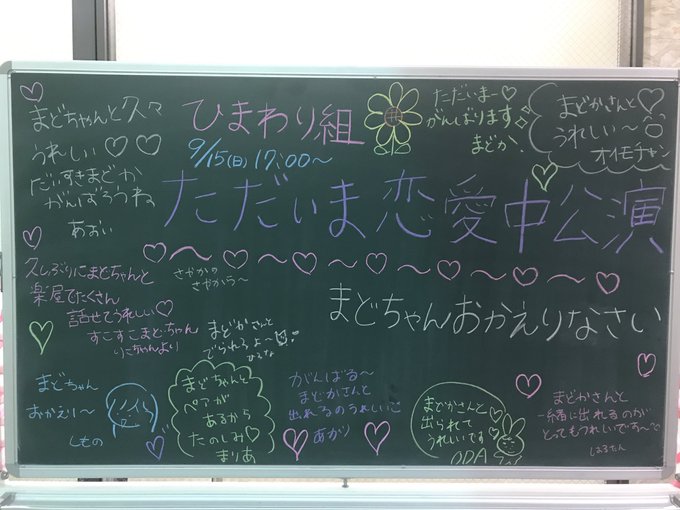 まどちゃんと久々
うれしい♡♡
だいすきまどか
がんばろうね
あおい
ひまわり組
9/15(日) 17:00～
ただいまー♡
がんばります
まどか
まどかさんと♡
うれしい～
オイモチャン
ただいま恋愛中公演
久しぶりにまどちゃんと
楽屋でたくさん
話せてうれしい♡
すこすこまどちゃん
りこちゃんより
さやかの
さやから～
まどちゃんおかえりなさい
まどかさんと
でられるよ～
ひろな
まどちゃん
おかえり～
しもの
まどちゃんと
ペアが
あるから
たのしみ♡
まりあ
がんばる～
まどかさんと
出れるのうれしい
あかり
まどかさんと
出られて
うれしいです
ODA
まどかさんと
一緒に出れるのが
とってもうれしいです～♡